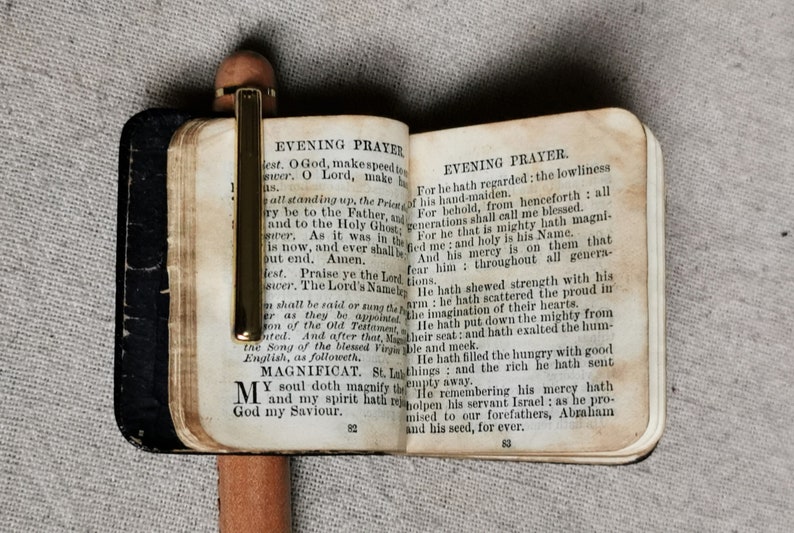 EVENING PRAYER.
iest. O God, make speed to
nswer. O Lord, make ha
us.
e all standing up, the Priest
ory be to the Father, and
and to the Holy Ghost;
nswer. As it was in the
is now, and ever shall be
out end. Amen.
iest. Praise ye the Lord.
nswer. The Lord's Name be
en shall be said or sung the P
er as they be appointed.
son of the Old Testament, a
inted. And after that, Magni
the Song of the blessed Virgin
English, as followeth.
MAGNIFICAT. St. Luke
MY soul doth magnify the
and my spirit hath rejoi
God my Saviour.
82
EVENING PRAYER.
For he hath regarded : the lowliness
of his hand-maiden.
For behold, from henceforth : all
generations shall call me blessed.
For he that is mighty hath magni-
fied me : and holy is his Name.
And his mercy is on them that
fear him : throughout all genera-
tions.
He hath shewed strength with his
arm : he hath scattered the proud in
the imagination of their hearts.
He hath put down the mighty from
their seat : and hath exalted the hum-
ble and meek.
He hath filled the hungry with good
things : and the rich he hath sent
empty away.
He remembering his mercy hath
holpen his servant Israel : as he pro-
mised to our forefathers, Abraham
and his seed, for ever.
83